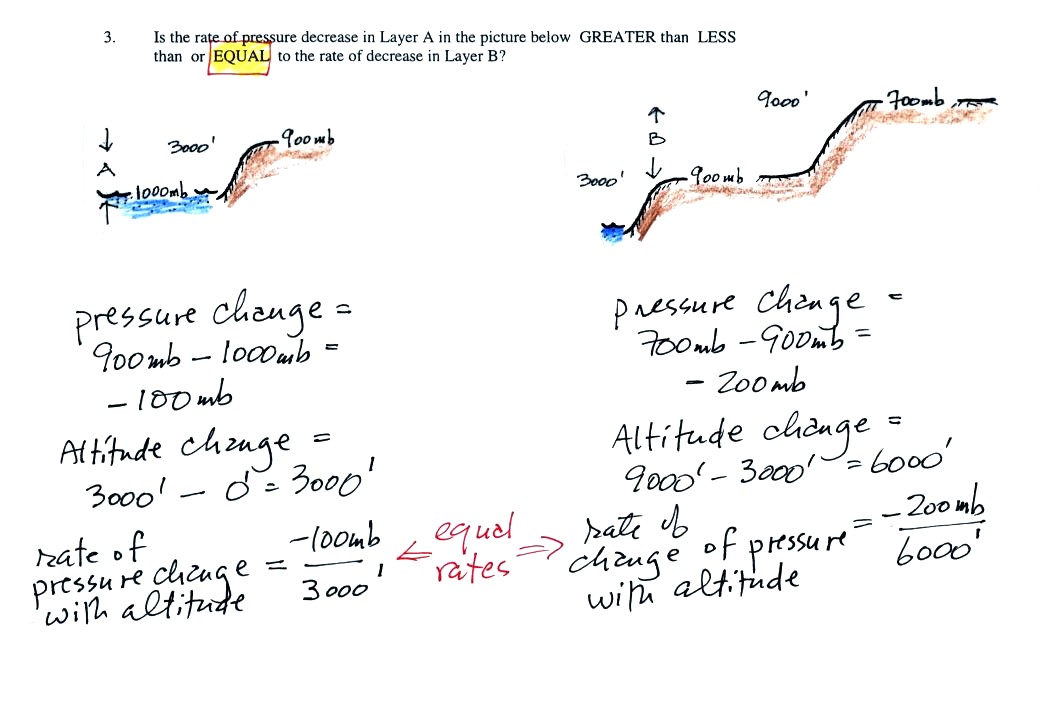 3. Is the rate of pressure decrease in Layer A in the picture below GREATER than LESS
than or EQUAL to the rate of decrease in Layer B?
↓
A
↑
3000'
900mb
1000mb
↑
B
↓
9000'
700mb
3000'
900mb
pressure change =
900mb – 1000mb =
– 100mb
Altitude change =
3000' – 0' = 3000'
rate of
pressure change = -100mb / 3000'
with altitude
⇐ equal ⇒
rates
pressure change =
700mb – 900mb =
– 200mb
Altitude change =
9000' – 3000' = 6000'
rate of
change of pressure = – 200mb / 6000'
with altitude